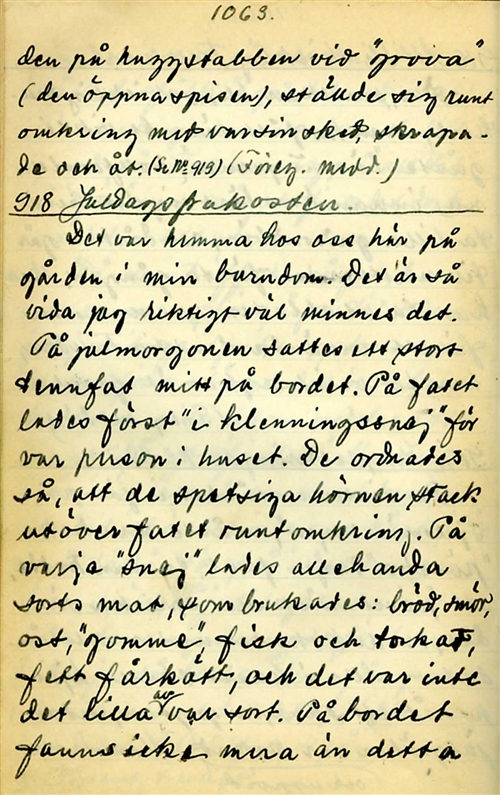 1063.
den på huggstabben vid "grova"
(den öppna spisen), ställde sig runt
omkring med varsin sked, skrapa-
de och åt. (Se Nr. 919) (Föreg. medd.)
918 Juldagsfrukosten.
Det var hemma hos oss här på
gården i min barndom. Det är så
vida jag riktigt väl minnes det.
På julmorgonen sattes ett stort
tennfat mitt på bordet. På fatet
lades först "i klenningssnej" för
var person i huset. De ordnades
så, att de spetsiga hörnen stack
utöver fatet runtomkring. På
varje "snej" lades allehanda
sorts mat, som brukades: bröd, smör,
ost, "gomme", fisk och torkat,
fett fårkött, och det var inte
det lilla av var sort. På bordet
fanns icke mera än detta